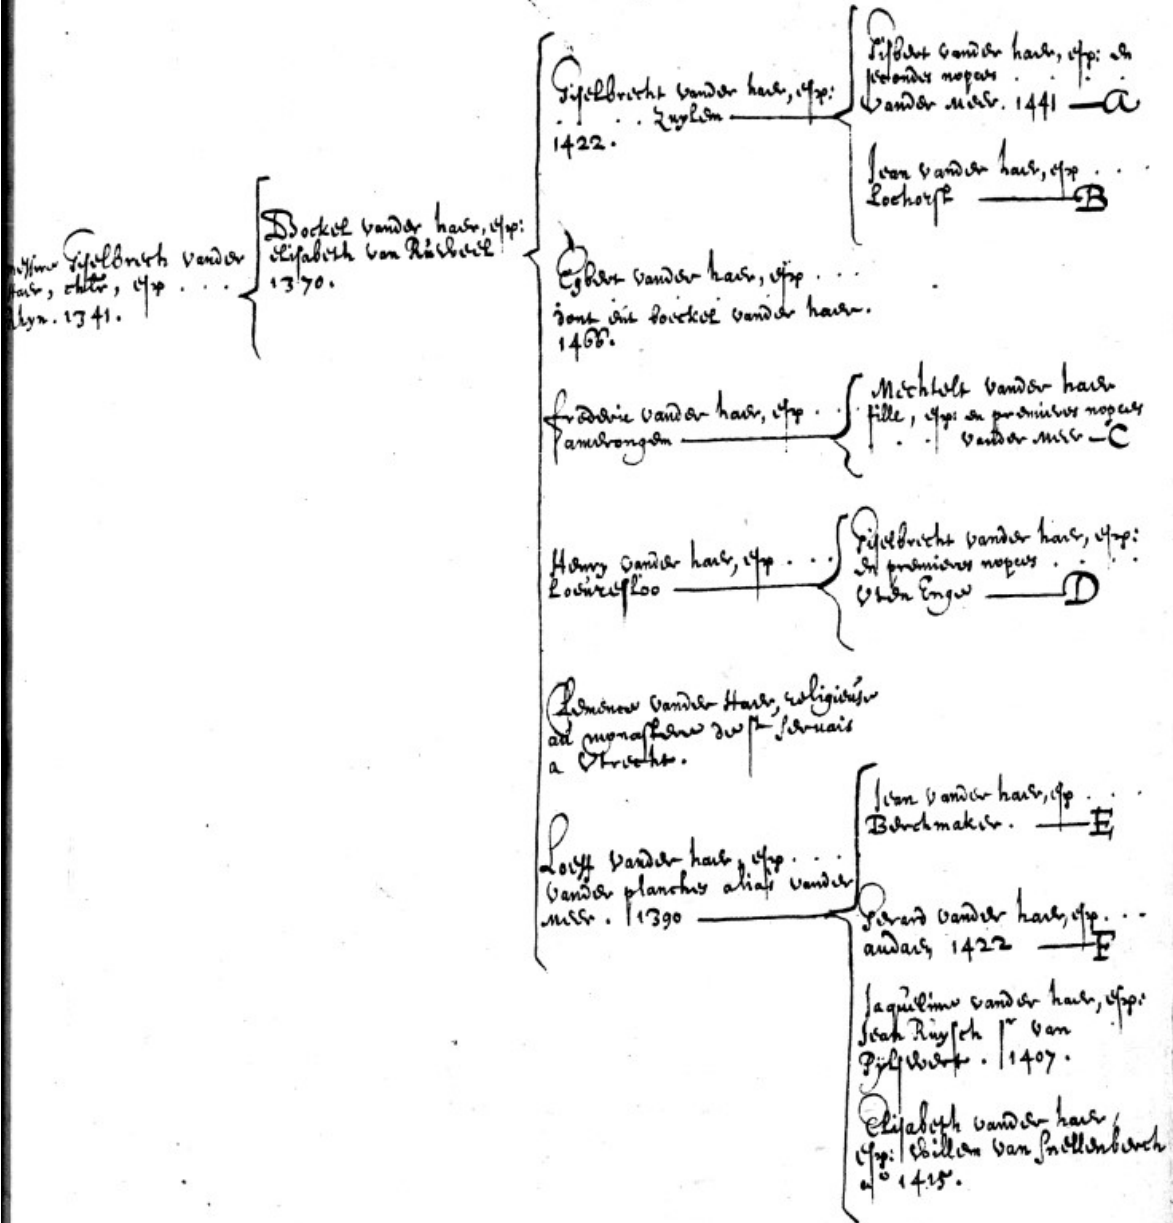 messire Giselbrech vander
haer, chlr, esp . . .
Rhyn. 1341.
Bockel vander haer, esp:
elisabeth van Ruweel
1370.
Giselbrecht vander haer, esp:
. . . . Zuylen
1422.
Gisbert vander haer, esp: en
secondes nopces . . . .
vander Meer. 1441 — A
Jean vander haer, esp . . .
Lochorst — B
Egbert vander haer, esp . . .
dont eut boeckel vander haer.
1466.
frederic vander haer, esp . .
amerongen
Mechtelt vander haer
fille, esp: en premieres nopces
. . vander Meer — C
Henry vander haer, esp . . .
Loeuresloo
Giselbrecht vander haer, esp:
en premieres nopces . . . .
Vten Enge — D
Clemence vander Haer, religieuse
au monastere de st Seruais
a Vtrecht.
Loeff vander haer, esp . . .
vander planches alias vander
Meer. 1390
Jean vander haer, esp . . .
Berchmaker. — E
Gerard vander haer, esp. . . .
1422 — F
Jaqueline vander haer, esp:
Jean Ruysch sr van
Pylswert. 1407.
Elisabeth vander haer,
esp: Willem van Snellenberch
ao 1415.